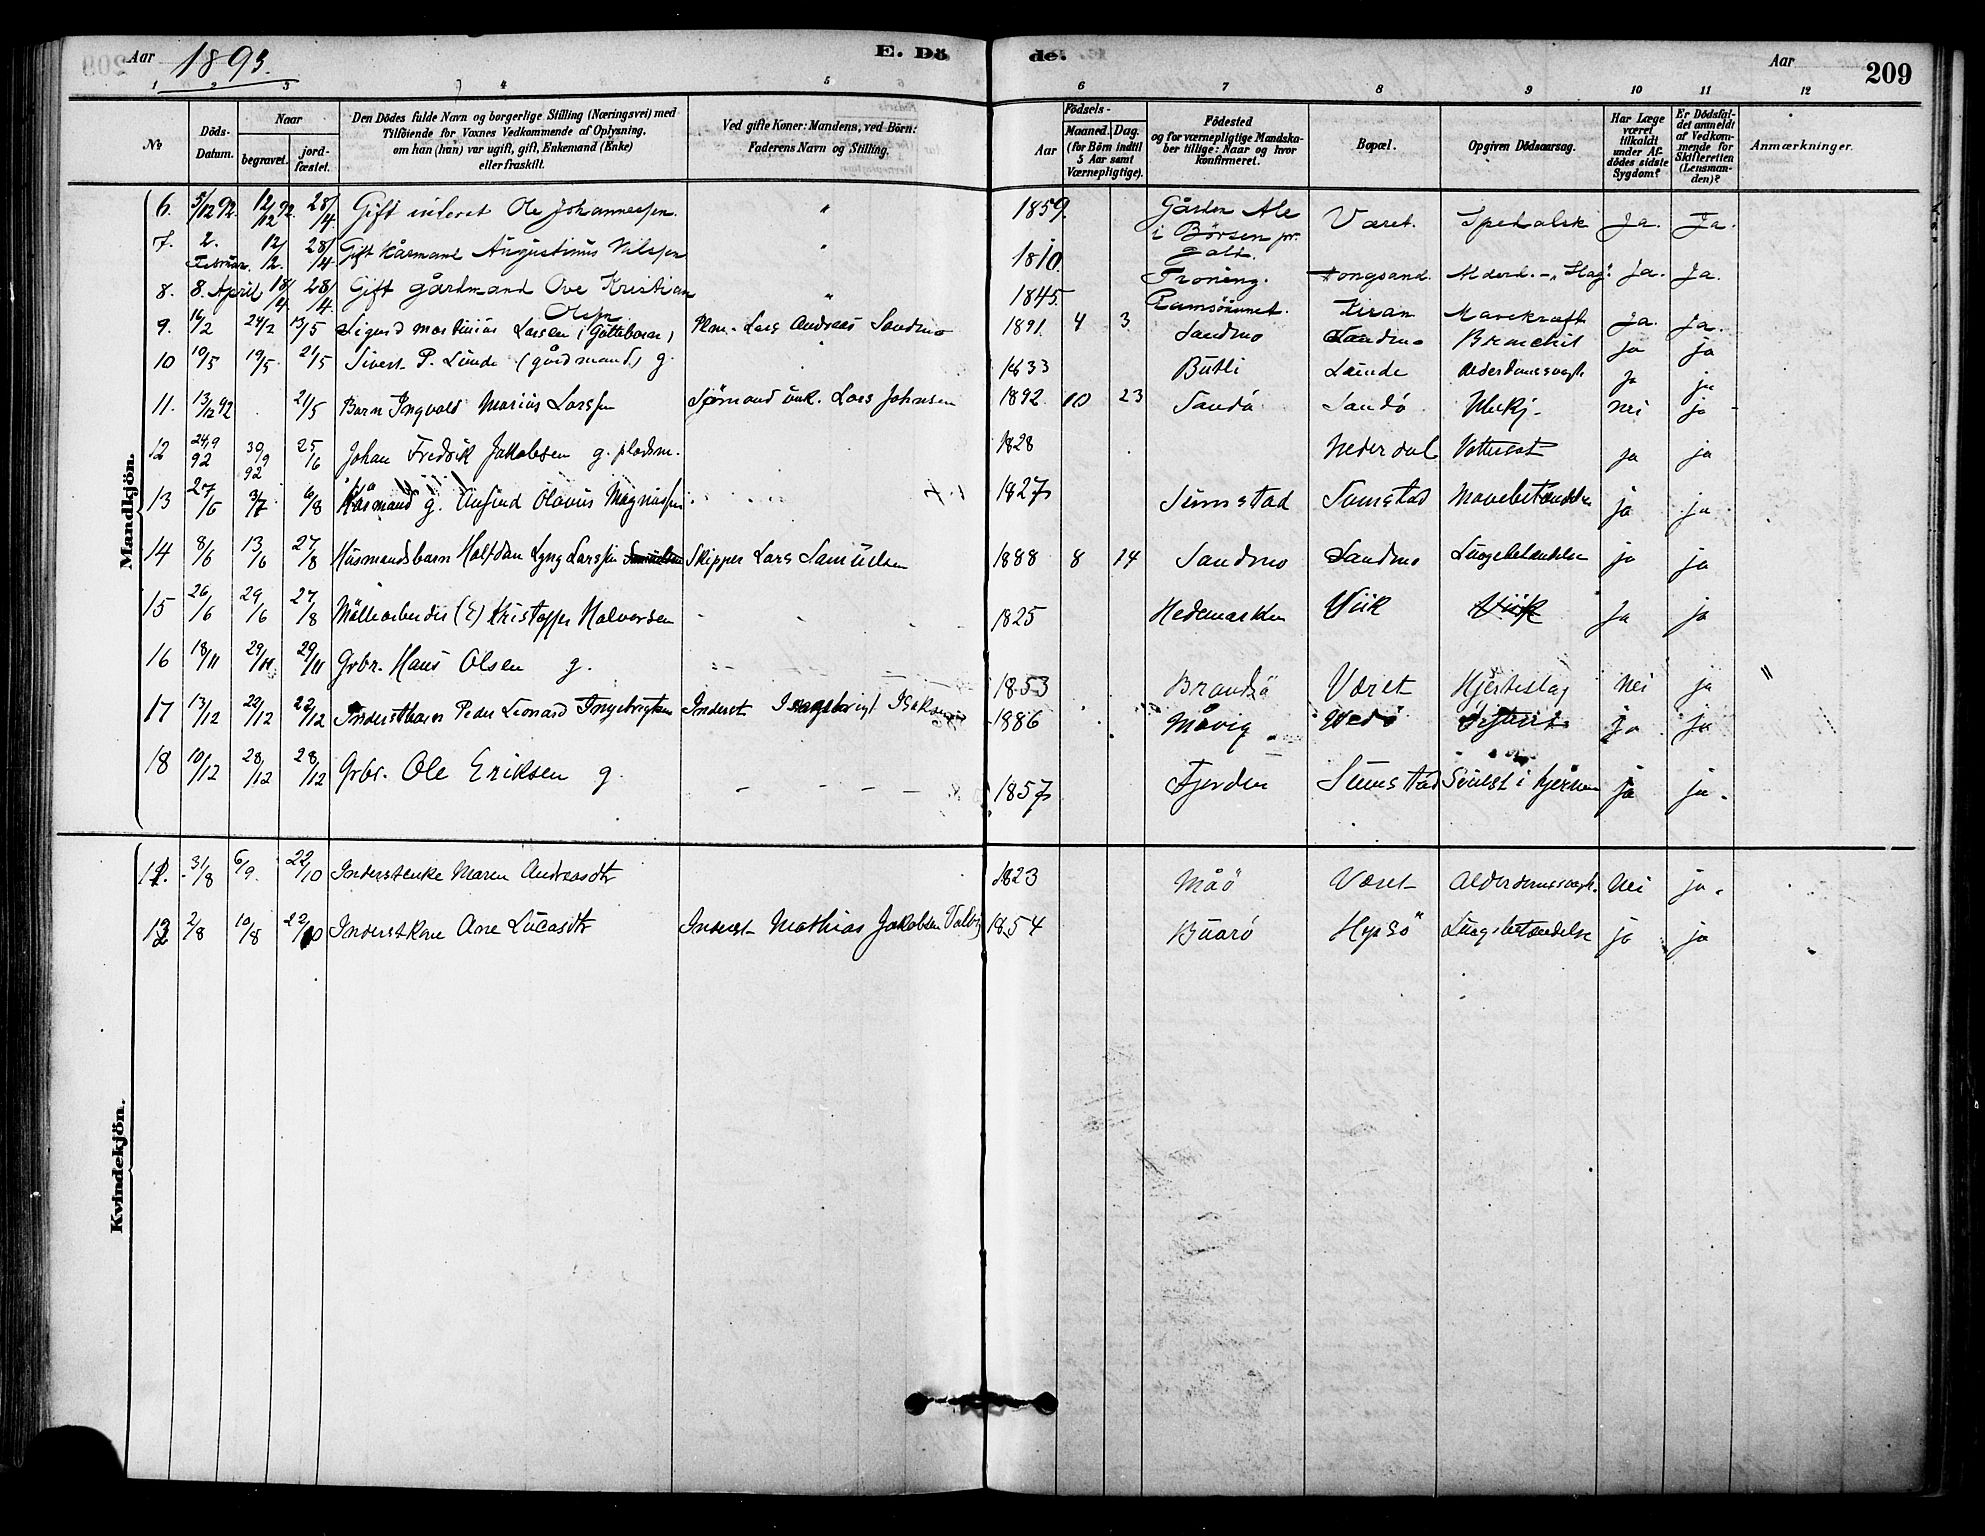 Aar 1893. E. Döde. Aar 209
1 2 3 4 5 6 7 8 9 10 11 12
No
Döds-Datum.
Naar begravet. jordfæstet.
Den Dödes fulde Navn og borgerlige Stilling (Næringsvei) med Tilföiende for Voxnes Vedkommende af Oplysning, om han (hun) var ugift, gift, Enkemand (Enke) eller fraskilt.
Ved gifte Koner: Mandens, ved Börn: Faderens Navn og Stilling.
Födsels-
Aar
Maaned. Dag.
(for Börn indtil 5 Aar samt Værnepligtige).
Födested og for værnepligtige Mandskaber tillige: Naar og hvor Konfirmeret.
Bopæl.
Opgiven Dödsaarsag.
Har Læge været tilkaldt under Afdödes sidste Sygdom?
Er Dödsfaldet anmeldt af Vedkommende for Skifteretten (Lensmanden)?
Anmærkninger.
Mandkjön.
6. 5/12 92. 12/12 92. 28/4. Gift inderst Ole Johannessen. " 1859. Gården Ale i Börsen pr. gald. Været. Spedalsk Ja. Ja.
7. 2. Februar. 12/2. 28/4 Gift Kårmand Augustinus Nilssen " 1810. Troning. Kongsand. Alderd. - "Slag". Ja. Ja.
8. 8. April 18/4 28/4. Gift gårdmand Ove Kristian Olsen " 1845. Ramsöiunnet. Kiran Mavekræft Ja. Ja.
9. 16/2 24/2 13/5 Sigurd Martinius Larsen Plm. Lars Andreas Sandmo 1891. 4 3 Sandmo Sandmo Bronchit ja ja
10 10/5 19/5 21/5 Sivert P. Lunde (gårdmand) g. 1833 Butli Lunde Alderdomssvagh. ja ja
11. 13/12 92 21/5 Barn Ingvald Marius Larssen Sjømand uk. Lars Johnsen 1892 10 23 Sandö Sandö Ubekj. nei ja
12 24/9 92 30/9 92 25/6 Johan Fredrik Jakobsen g. pladsm. 1828 Nederdal Vattersot ja ja
13 27/6 3/7 6/8 Kårmand g. Anfind Olavus Magnussen 1827 Sumstad Sumstad Mavebetændelse ja ja
14 8/6 13/6 27/8 Husmandsbarn Halfdan Lyng Larssen Skipper Lars Samuelsen 1888 8 14 Sandmo Sandmo Lungebetændelse ja ja
15 26/6 29/6 27/8 Møllearbeider (E) Kristoffer Halvorsen 1825 Hedemarken Viik Viik ja ja
16 18/11 29/11 29/11 Grbr. Hans Olsen g. 1853 Brandsö Været Hjerteslag Nei ja "
17 13/12 22/12 22/12 Inderstbarn Peder Leonard Ingebrigtsen Inderst Ingebrigt Isaksen 1886 Måvig Vedö ja ja
18 10/12 28/12 28/12 Grbr. Ole Eriksen g. 1857 Fjorden Sumstad Svulst i hjernen ja ja.
Kvindekjön.
11. 31/8 6/9. 22/10 Inderstenke Maren Andreasdtr 1823 Måö Været Alderdomssvagh. Nei ja.
12 2/8 10/8 22/10 Inderstkone Ane Lucasdtr Inderst Mathias Jakobsen 1854 Buarö Hopsö Lungebetændelse ja ja